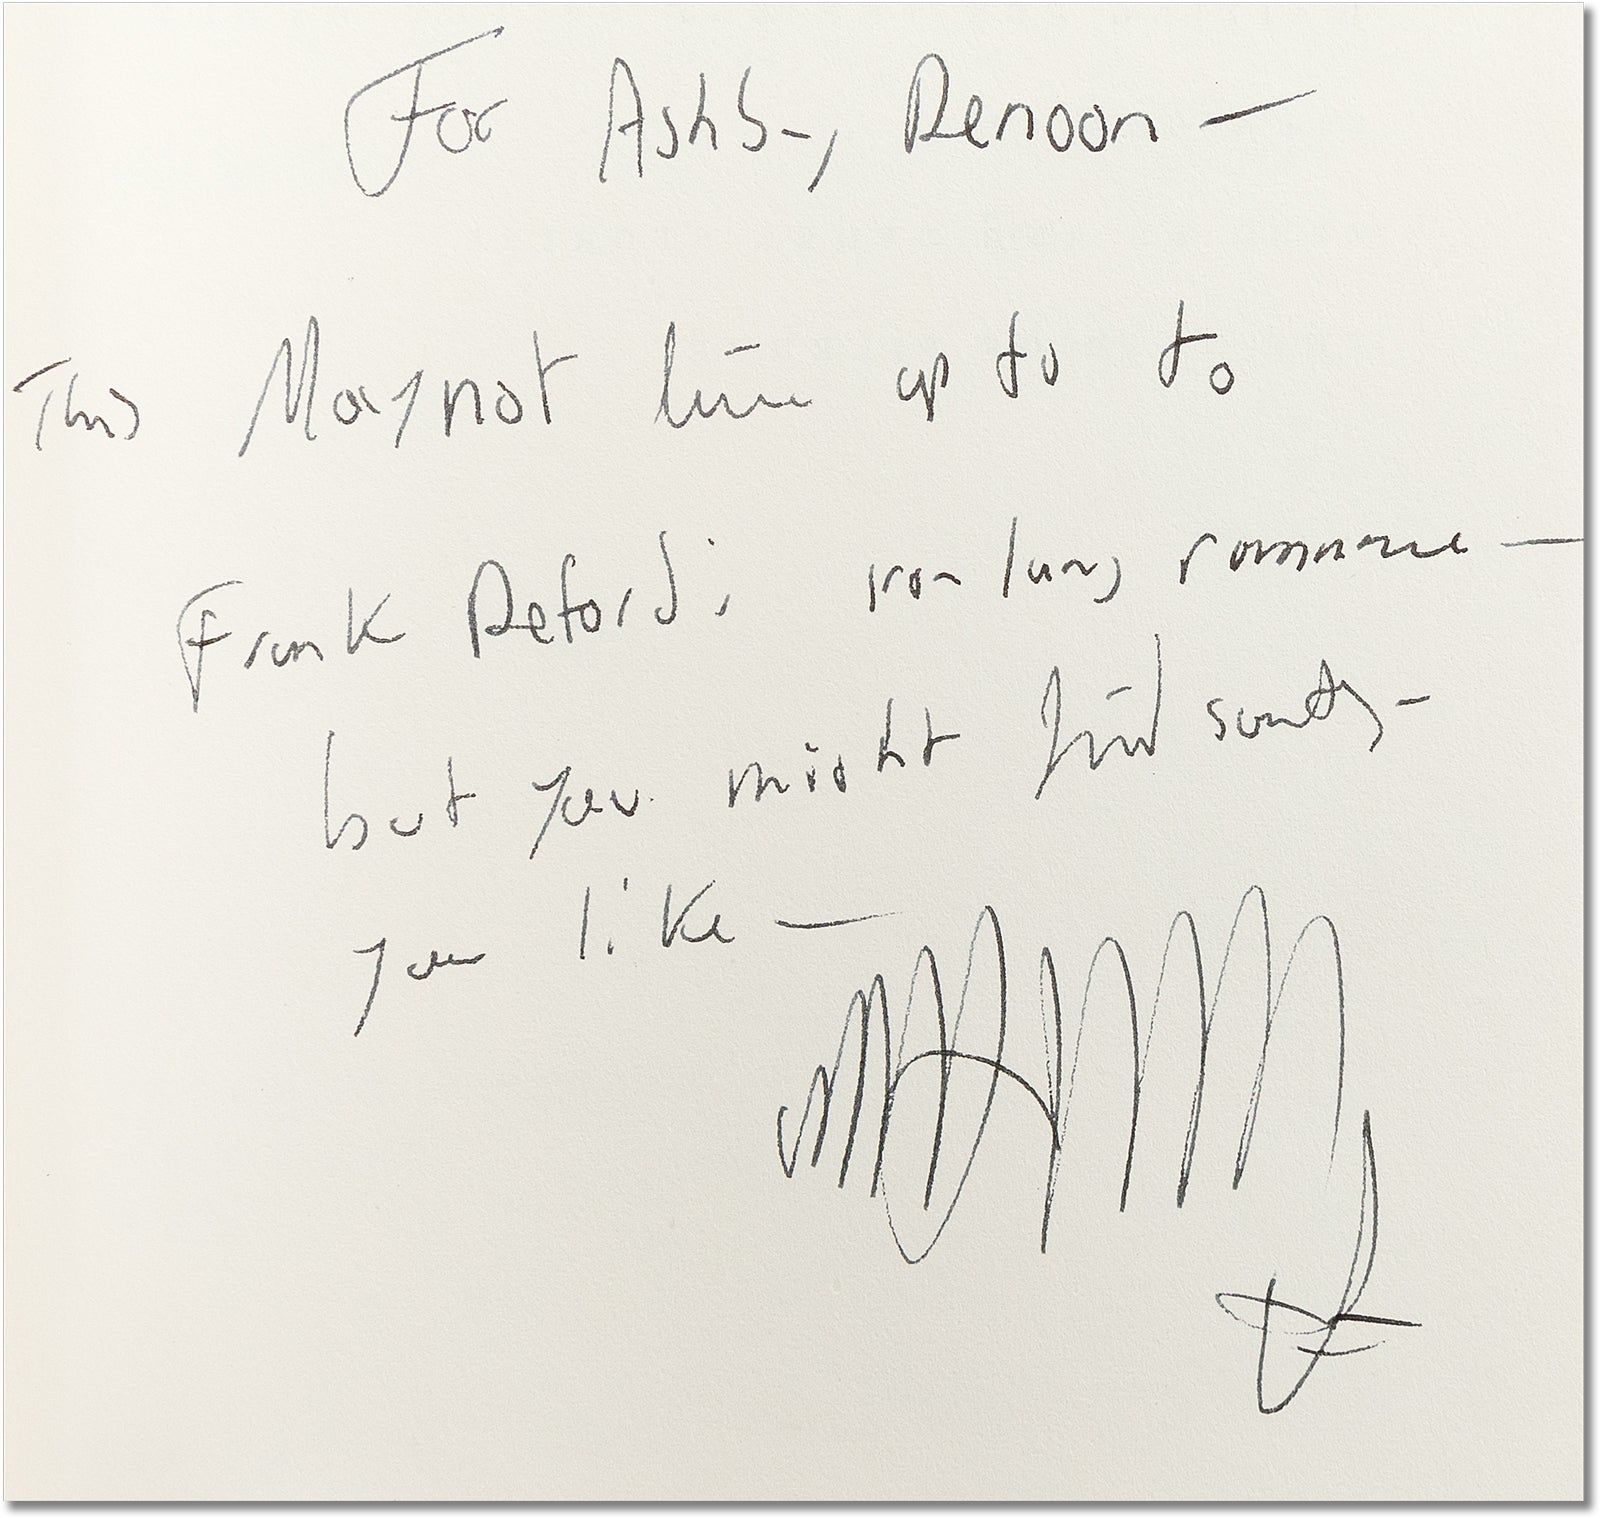 For Ashby, Denoon —
This May not live up to to
Frank Deford's iron lung romance —
but you might find
you like —